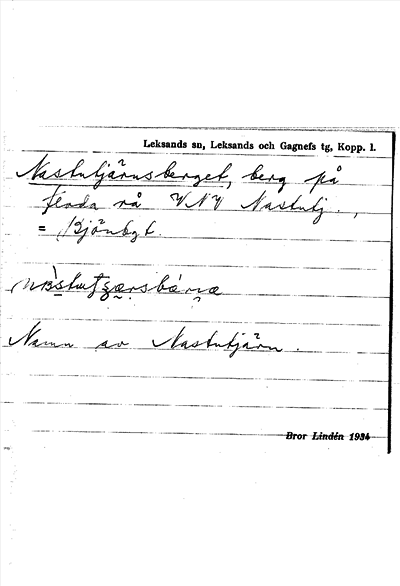 Leksands sn, Leksands och Gagnefs tg, Kopp. l.
Nastutjärnsberget, berg på
rå VNV Nastutj.,
= Björnbgt.
Namn av Nastutjärn.
Bror Lindén 1934